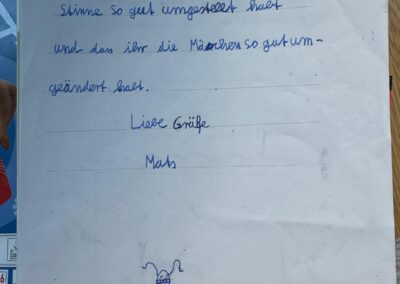 Stinne so gut umgestellt habt
und das ihr die Märchen so gut um-
geändert habt.
Liebe Grüße
Mats